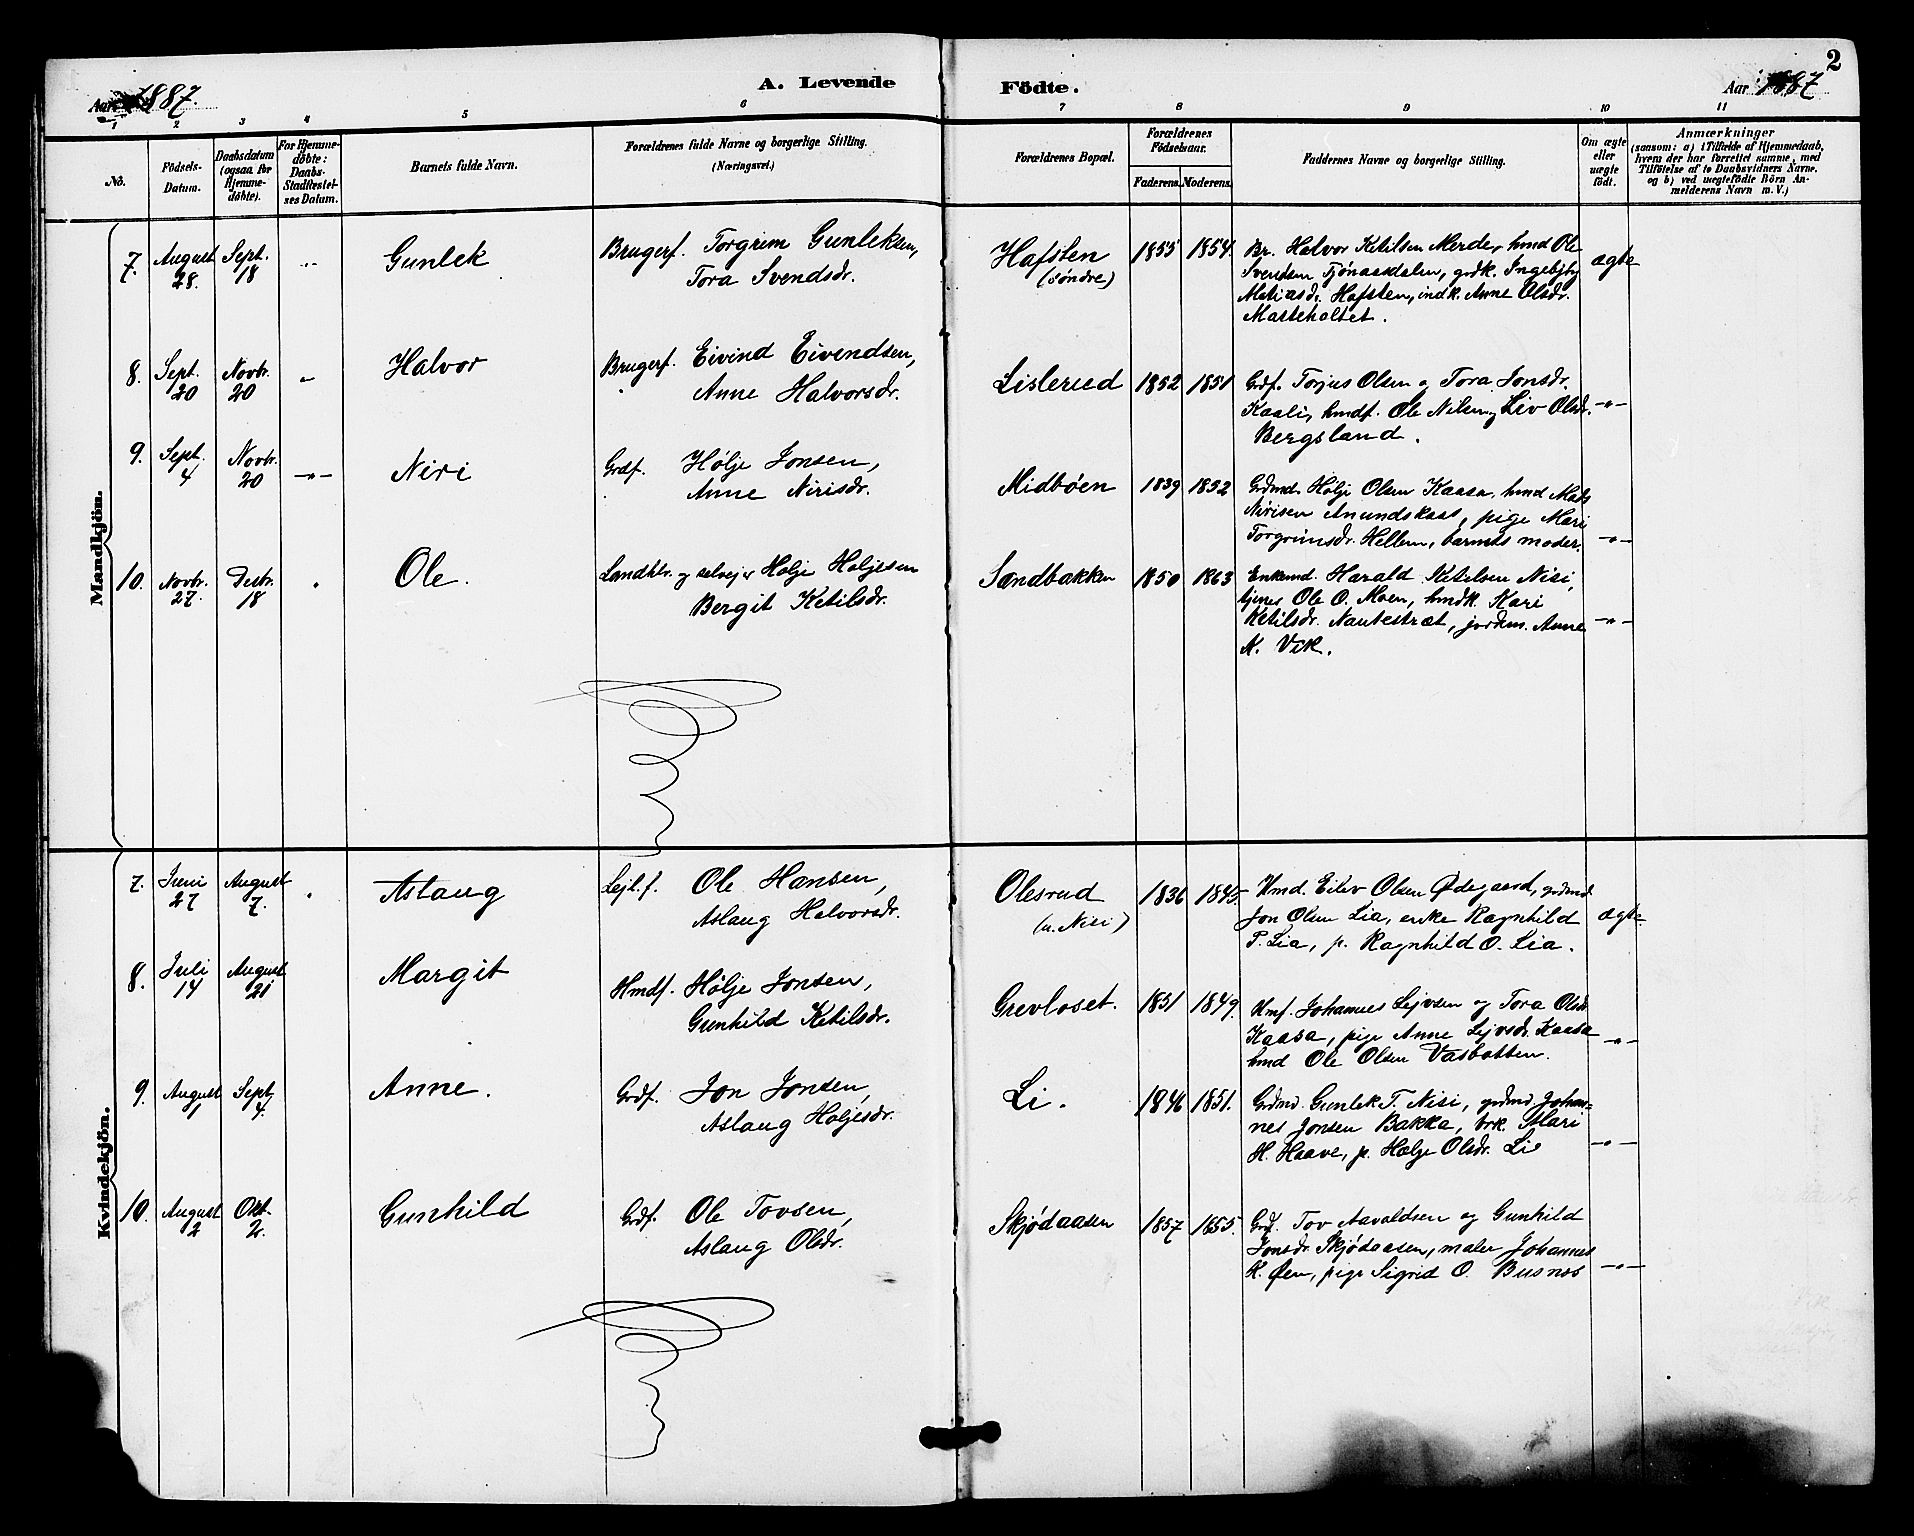 2
Aar 1887. A. Levende Födte. Aar 1887
1 2 3 4 5 6 7 8 9 10 11
No.
Födsels-
Datum.
Daabsdatum
(ogsaa for
Hjemme-
döbte).
For Hjemme-
döbte:
Daabs-
Stadfæstel-
ses Datum.
Barnets fulde Navn.
Forældrenes fulde Navne og borgerlige Stilling.
(Næringsvei.)
Forældrenes Bopæl.
Forældrenes
Födselsaar.
Faderens. Moderens.
Faddernes Navne og borgerlige Stilling.
Om ægte
eller
uægte
födt.
Anmærkninger
(saasom: a) i Tilfælde af Hjemmedaab,
hvem der har forrettet samme, med
Tilföielse af to Daabsvidners Navne.
og b) ved uægtefödte Börn An-
melderens Navn m. V.)
Mandkjön.
7. August 28. Sept. 18 „ Gunlek
Brugerf. Torgrim Gunleksen,
Tora Svendsdr.
Hafsten
(søndre)
1855 1854
Br. Halvor Ketilsen Merde, hmd Ole
Svendsen Tjönaasdalen, grdk. Ingebjbg
Matiasdr. Hafsten, indk. Anne Olsdr.
Marteholtet.
ægte
8. Sept. 20 Novbr. 20 „ Halvor
Brugerf. Eivind Eivendsen,
Anne Halvorsdr.
Lislerud 1852 1851
Grdf. Torjus Olsen og Tora Jonsdr.
Kaali, hmdf. Ole Nilsen og Liv Olsdr.
Bergsland.
-„-
9. Sept. 4 Novbr. 20 -„- Niri
Grdf. Hølje Jonsen,
Anne Nirisdr.
Midbøen 1839 1852
Grdmd. Hølje Olsen Kaasa, hmd Mads
Nirisen Anundskaas, pige Mari
Torgrimsdr. Hellem, barnets moder.
-„-
10. Novbr. 27. Desbr. 18 „ Ole.
Landhdr. og selvejer Hølje Høljesen
Bergit Ketilsdr.
Sandbakken 1850 1863
Enkemd. Harald Ketilsen Nisi,
tjener Ole O. Moen, hmdk. Kari
Ketilsdr. Nautestræt, jordm. Anne
K. Vik.
-„-
Kvindekjön.
7. Juni 27 August 7. „ Aslaug
Lejl.f. Ole Hansen,
Aslaug Halvorsdr.
Olesrud
(u. Nisi)
1836 1845
Hmd. Eilev Olsen Ødegaard, grdmd.
Jon Olsen Lia, enke Ragnhild
T. Lia, p. Ragnhild O. Lia.
ægte
8. Juli 14 August 21 Margit
Hmdf. Hølje Jonsen,
Gunhild Ketilsdr.
Grevloset. 1851 1849.
Hmf. Johannes Lejvsen og Tora Olsdr.
Kaasa, pige Anne Lejvsdr. Kaasa
hmd Ole Olsen Vasbotten.
-„-
9. August 1 Sept. 4. Anne.
Grdf. Jon Jonsen,
Aslaug Høljesdr.
Li. 1846 1851.
Grdmd. Gunlek T. Nisi, grdmd. Johan-
nes Jonsen Bakka, brk. Mari
H. Haave, p. Hølje Olsdr. Li
-„-
10. August 12 Okt. 2. Gunhild
Grdf. Ole Tovsen,
Aslaug Olsdr.
Skjødaasen 1857 1855.
Grdf. Tov Aavaldsen og Gunhild
Jonsdr. Skjødaasen, maler Johannes
K. Øen, pige Sigrid O. Busnes
-„-